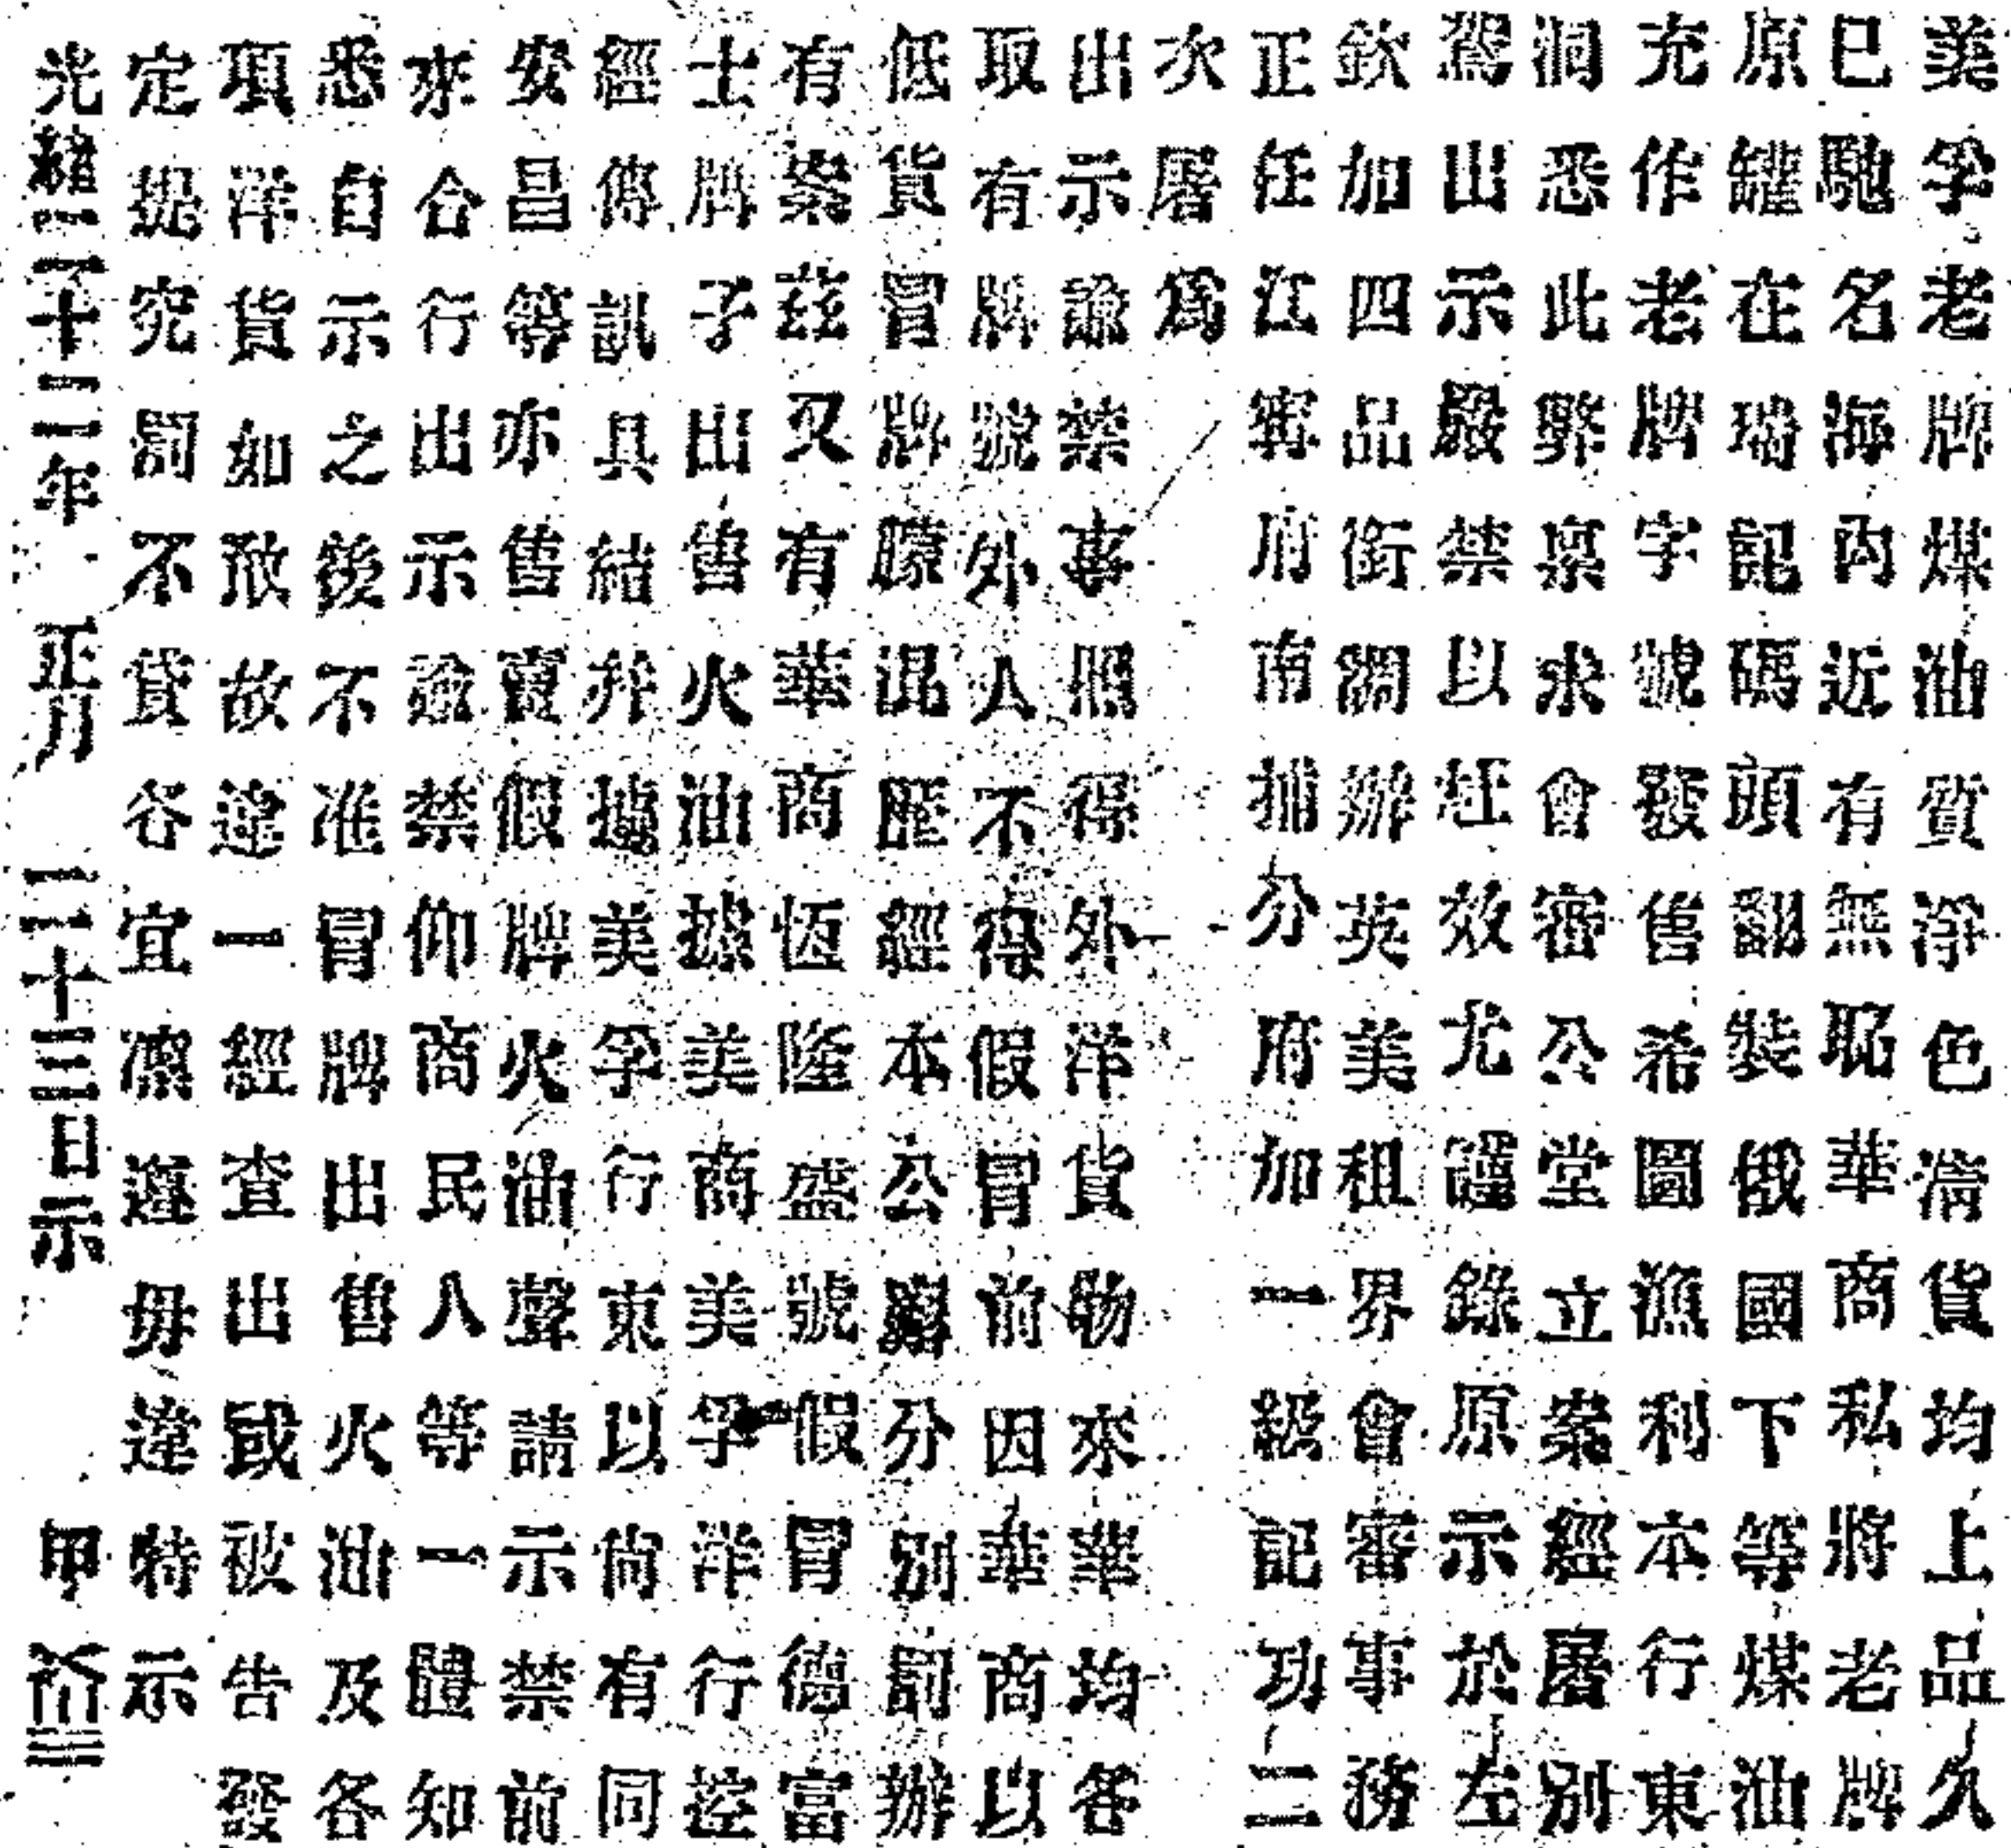 美孚老牌煤油質淨色清貨均上品久
已馳名海內近有無恥華商私將老牌
原罐在瑞記碼頭翻裝俄國下等煤油
充作老牌字號發售希圖漁利本行東
洞悉此弊稟求會審公堂立案經屠別
駕出示嚴禁以杜效尤謹錄原示於左
欽加四品銜調辦英美租界會審事務
正任江甯府南捕分府加一級記功二
次屠爲
出示諭禁事照得外洋貨物來華均各
取有牌號外人不得假冒前因華商以
低貨冒牌朦混歷經本公廨分別罰辦
有案茲又有華商恆隆盛號假冒德富
士牌子出售火油據美商美孚洋行控
經傳訊具結并據美孚行東以尚有同
安昌等亦售賣假牌火油聲請示禁前
來合行出示諭禁仰商民人等一體知
悉自示之後不准冒牌出售火油及各
項洋貨如敢故違一經查出或被告發
定提究罰不貸各宜凜遵毋違特示
光緒二十二年 正月 二十三日示 甲